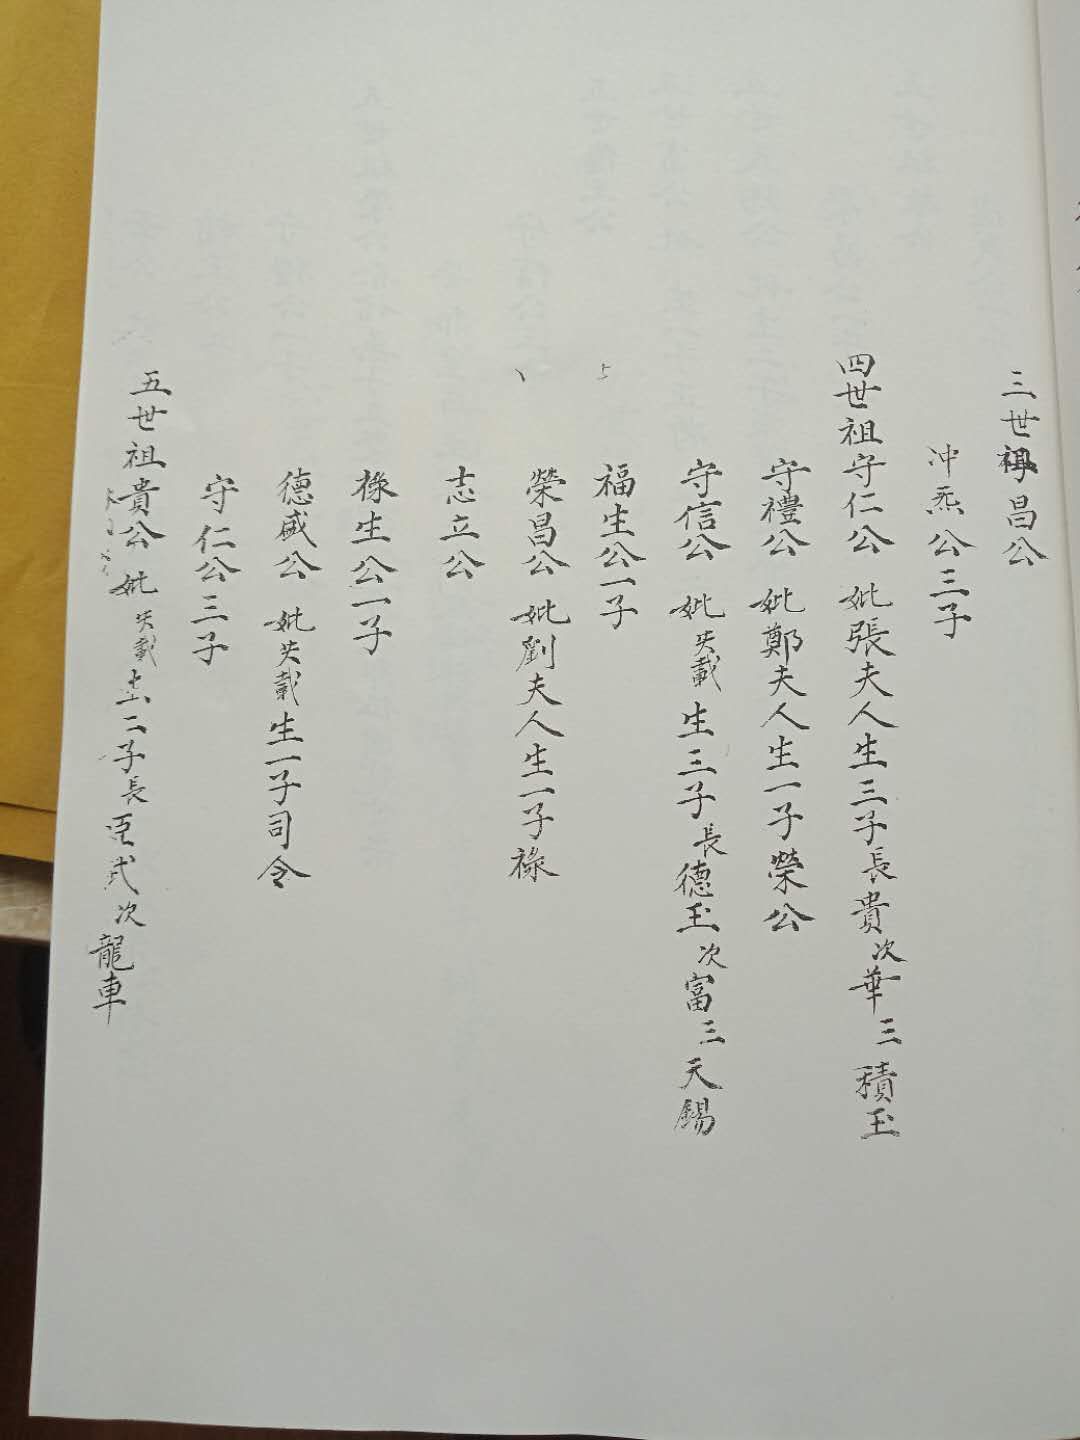 三世祖昌公
冲炁公三子
四世祖守仁公 妣張夫人生三子長貴次華三積玉
守禮公 妣鄭夫人生一子榮公
守信公 妣失載生三子長德玉次富三天錫
福生公一子
榮昌公 妣劉夫人生一子祿
志立公
祿生公一子
德盛公 妣失載生一子司令
守仁公三子
五世祖貴公 妣失載生二子長臣武次龍車